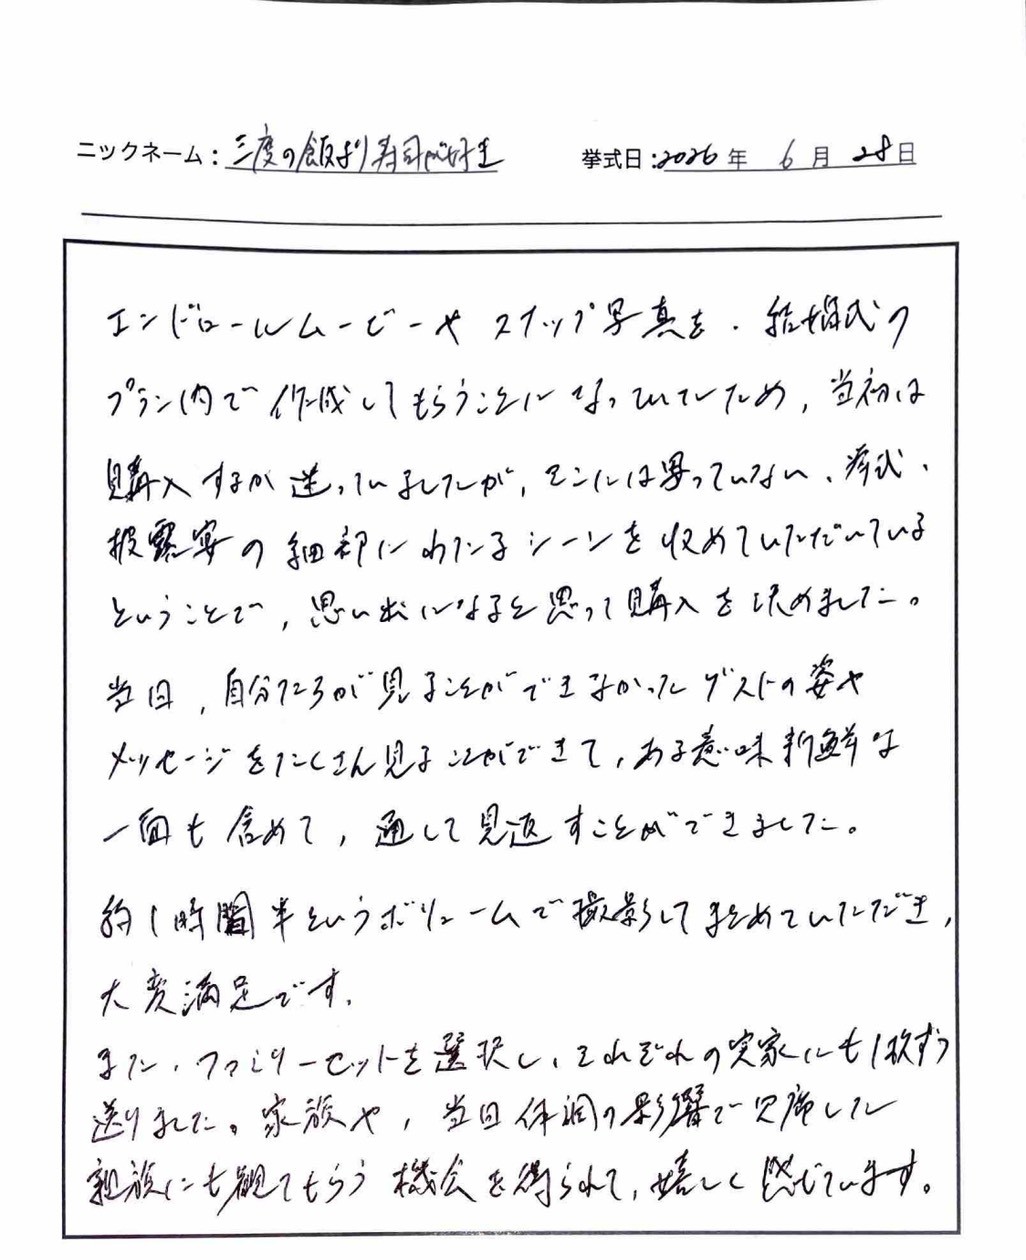 ニックネーム：三度の飯より寿司が好き
挙式日：2026年 6月 28日
エンドロールムービーや スナップ写真を、結婚式の
プラン内で作成してもらうことになっていたため、当初は
購入するか迷っていましたが、エンドには写っていない、挙式、
披露宴の細部にわたるシーンを収めていただいている
ということで、思い出になると思って購入を決めました。
当日、自分たちが見ることができなかったゲストの姿や
メッセージをたくさん見ることができて、ある意味新鮮な
一面も含めて、通して見返すことができました。
約1時間半というボリュームで撮影してまとめていただき、
大変満足です。
また、ファミリーセットを選択し、それぞれの実家にも1枚ずつ
送りました。家族や、当日体調の影響で欠席した
親族にも観てもらう機会を得られて、嬉しく感じています。